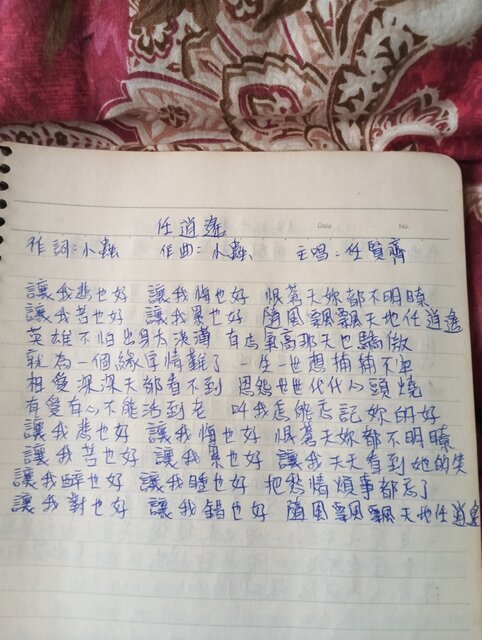 任逍遙
Date No.
作詞:小蟲 作曲:小蟲 主唱:任賢齊
讓我悲也好 讓我悔也好 恨蒼天妳都不明瞭
讓我苦也好 讓我累也好 隨風飄飄天地任逍遙
英雄不怕出身太淺薄 有志氣高那天也驕傲
就為一個緣字情難了 一生一世想捕捕不牢
相愛深深天都看不到 恩怨世世代代心頭燒
有愛有心不能活到老 叫我怎能忘記妳的好
讓我悲也好 讓我悔也好 恨蒼天妳都不明瞭
讓我苦也好 讓我累也好 讓我天天看到她的笑
讓我醉也好 讓我睡也好 把愁情煩事都忘了
讓我對也好 讓我錯也好 隨風飄飄天地任逍遙